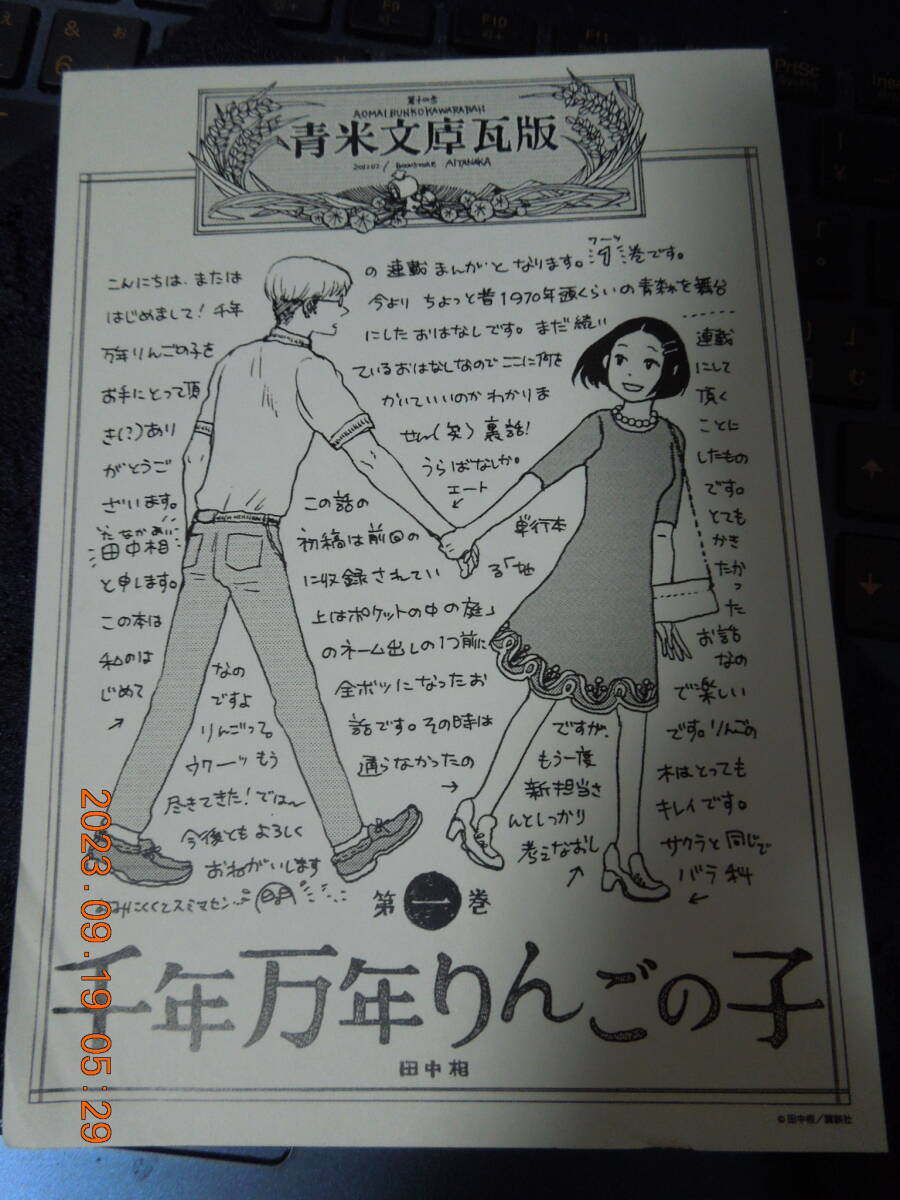 第十四号
AOMAI BUNKO KAWARABAN
青米文庫瓦版
2012.02 / BOOKSTORE AITANAKA
こんにちは、または
はじめまして!千年
万年りんごの子を
お手にとって頂
き(?)あり
がとうご
ざいます。
たなかあい
田中相
と申します。
この本は
私のは
じめて
の連載まんがとなります。1巻です。
ワーツ
今よりちょっと昔1970年頭くらいの青森を舞台
にしたおはなしです。まだ続い
ているおはなしなのでここに何を
かいていいのかわかりま
せん(笑)裏話!
うらばなしか。
エート
この話の
初稿は前回の単行本
に収録されている「地
上はポケットの中の庭」
のネーム出しの1つ前に
全ボツになったお
話です。その時は
通らなかったの
ですが、
もう一度
新担当さ
んとしっかり
考えなおし
連載
にして
頂く
ことに
したもの
です。
とても
かき
たかっ
た
お話
なの
で楽しい
です。りんごの
木はとっても
キレイです。
サクラと同じで
バラ科
なの
ですよ
りんごって。
ウワーッもう
尽きてきた!では〜
今後ともよろしく
おねがいします
よみにくくてスミマセン
第一巻
千年万年りんごの子
田中相
©田中相/講談社
2023.09.19 05:29
&
6
お
F10
F11
PrtSc